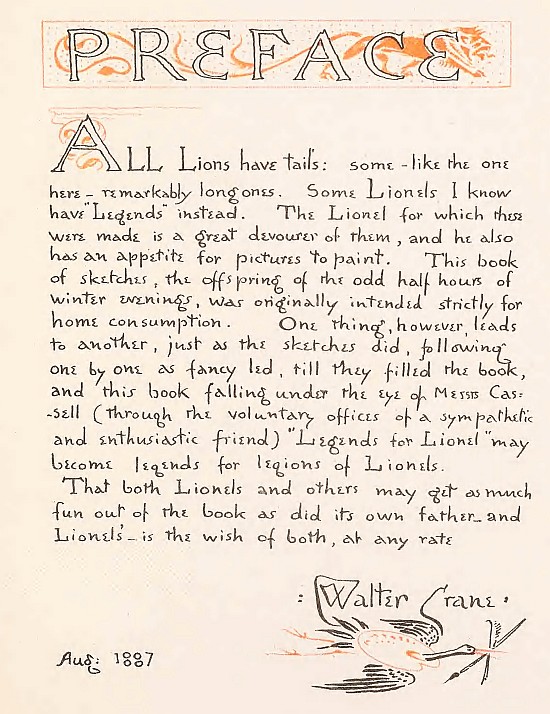 PREFACE
ALL Lions have tails: some - like the one
here - remarkably long ones. Some Lionels I know
have "Legends" instead. The Lionel for which these
were made is a great devourer of them, and he also
has an appetite for pictures to paint. This book
of sketches, the offspring of the odd half hours of
winter evenings, was originally intended strictly for
home consumption. One thing, however, leads
to another, just as the sketches did, following
one by one as fancy led, till they filled the book,
and this book falling under the eye of Messrs Cas-
-sell (through the voluntary offices of a sympathetic
and enthusiastic friend) "Legends for Lionel" may
become legends for legions of Lionels.
That both Lionels and others may get as much
fun out of the book as did its own father - and
Lionel's - is the wish of both, at any rate
: Walter Crane :
Aug: 1887